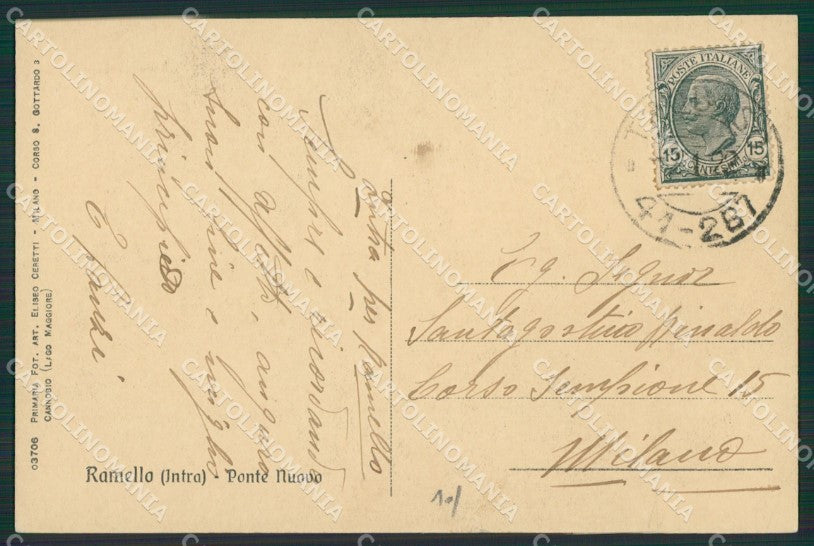 03706 PRIMARIA FOT. ART. ELISEO CERETTI - MILANO - CORSO S. GOTTARDO 3
CANNOBIO (LAGO MAGGIORE)
Intra per Ramello
Sempre ricordando
con affetto, auguro
buona fine e meglio
principio
Ramello (Intra) - Ponte Nuovo
POSTE ITALIANE
15 15
CENTESIMI
41-287
Eg. Signor
Santagostino Rinaldo
Corso Sempione 15
Milano
10/
CARTOLINOMANIA